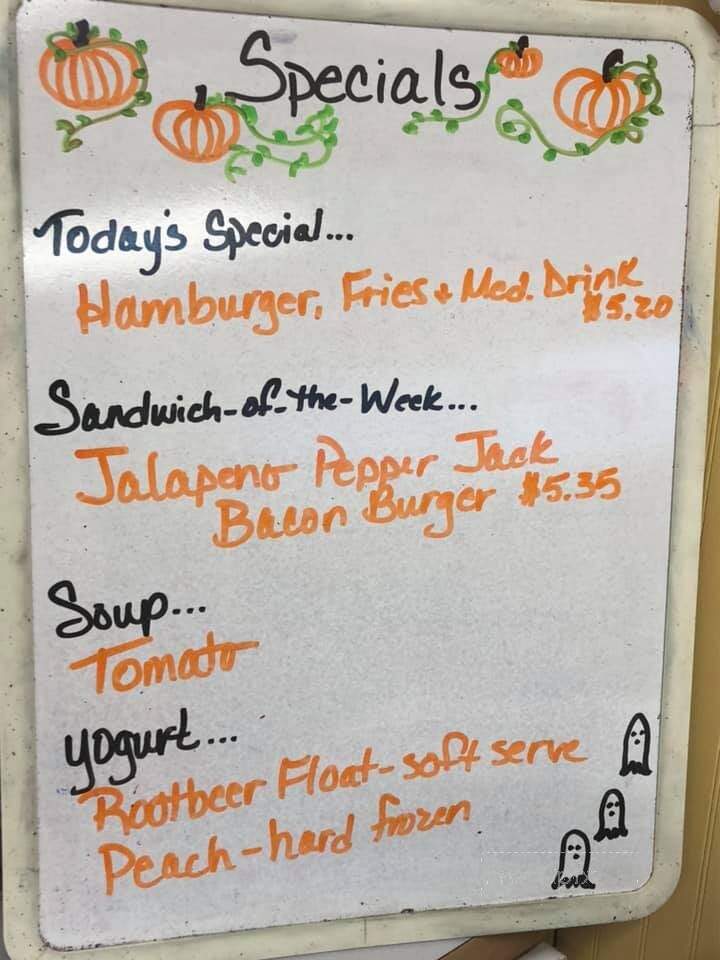 Specials
Today's Special...
Hamburger, Fries + Med. Drink
$5.20
Sandwich-of-the-Week...
Jalapeno Pepper Jack
Bacon Burger $5.35
Soup...
Tomato
Yogurt...
Rootbeer Float-soft serve
Peach-hard frozen